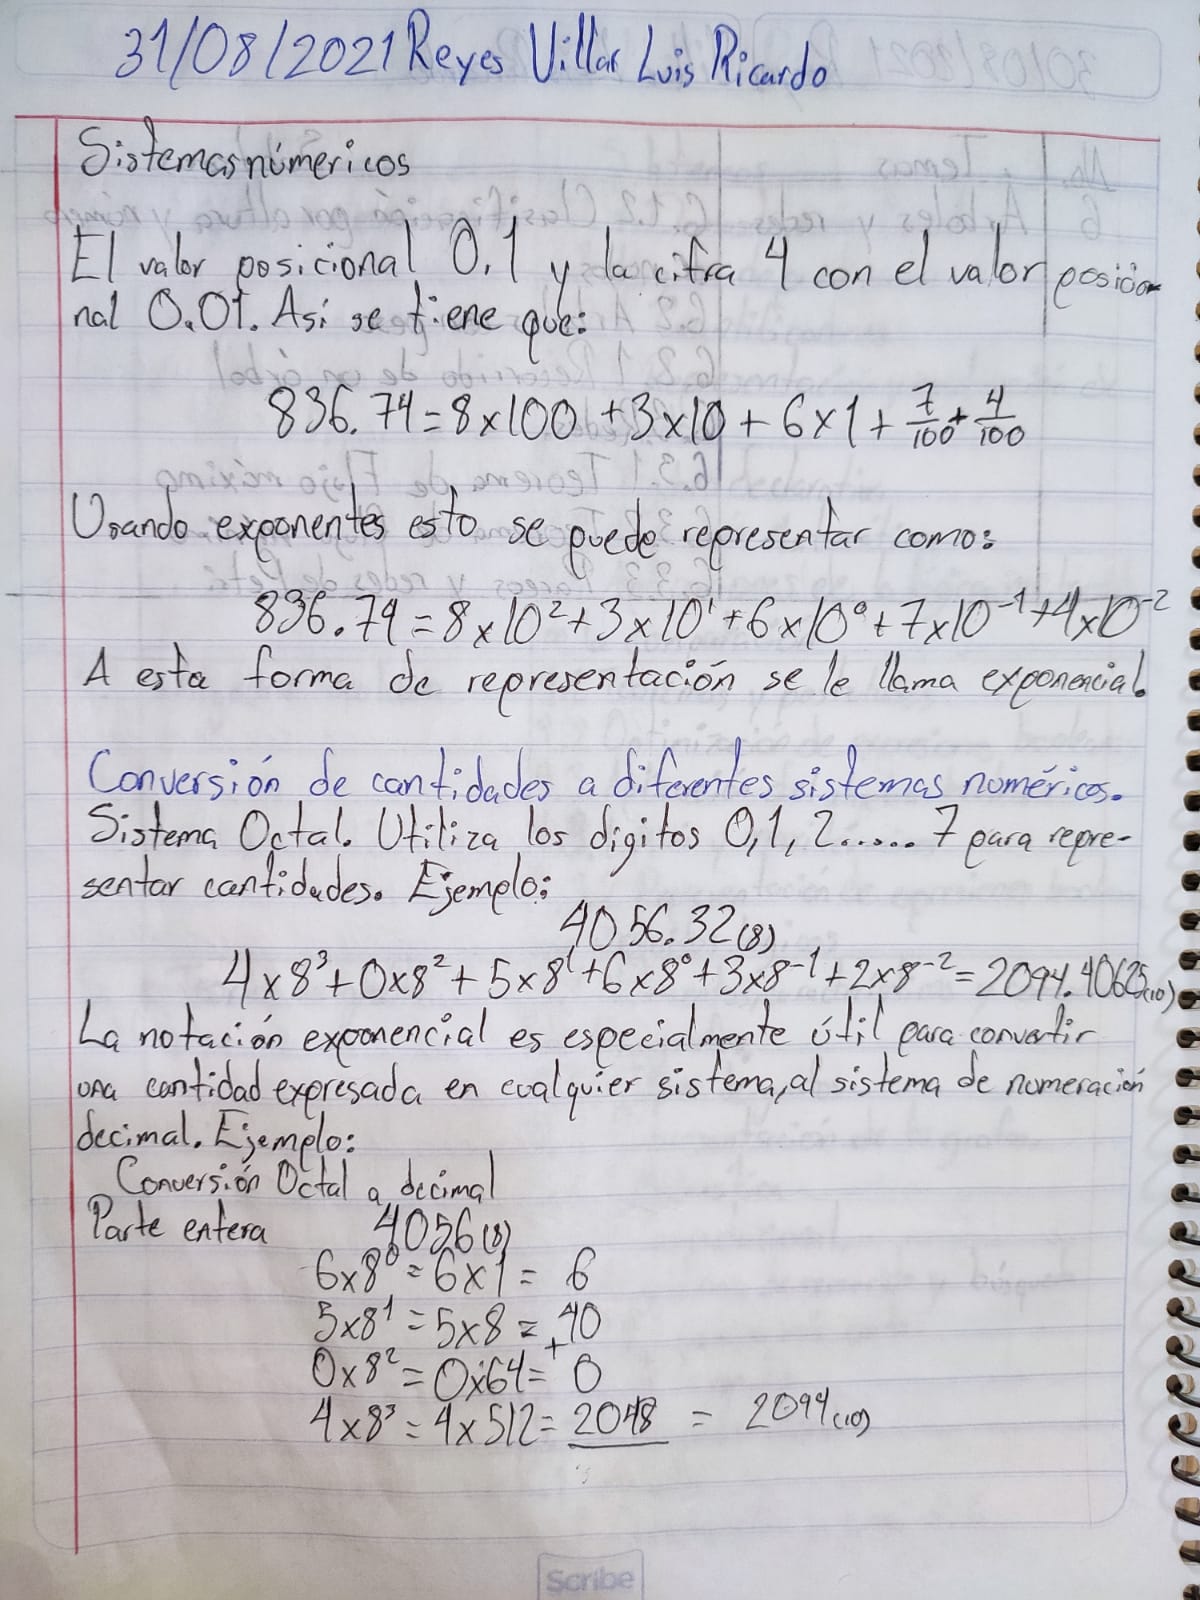 31/08/2021 Reyes Villar Luis Ricardo
Sistemas númericos
El valor posicional 0.1 y la cifra 4 con el valor posicio-
nal 0.01. Así se tiene que:
836.74=8x100+3x10+6x1+7/100+4/100
Usando exponentes esto se puede representar como:
836.74=8x10²+3x10¹+6x10⁰+7x10⁻¹+4x10⁻²
A esta forma de representación se le llama exponencial.
Conversión de cantidades a diferentes sistemas numéricos.
Sistema Octal. Utiliza los digitos 0,1,2...... 7 para repre-
sentar cantidades. Ejemplo:
4056.32(8)
4x8³+0x8²+5x8¹+6x8⁰+3x8⁻¹+2x8⁻²=2094.40625(10)
La notación exponencial es especialmente útil para convertir
una cantidad expresada en cualquier sistema, al sistema de numeración
decimal. Ejemplo:
Conversión Octal a decimal
Parte entera 4056(8)
6x8⁰=6x1= 6
5x8¹=5x8= 40
0x8²=0x64=+ 0
4x8³=4x512=2048 = 2094(10)
Scribe